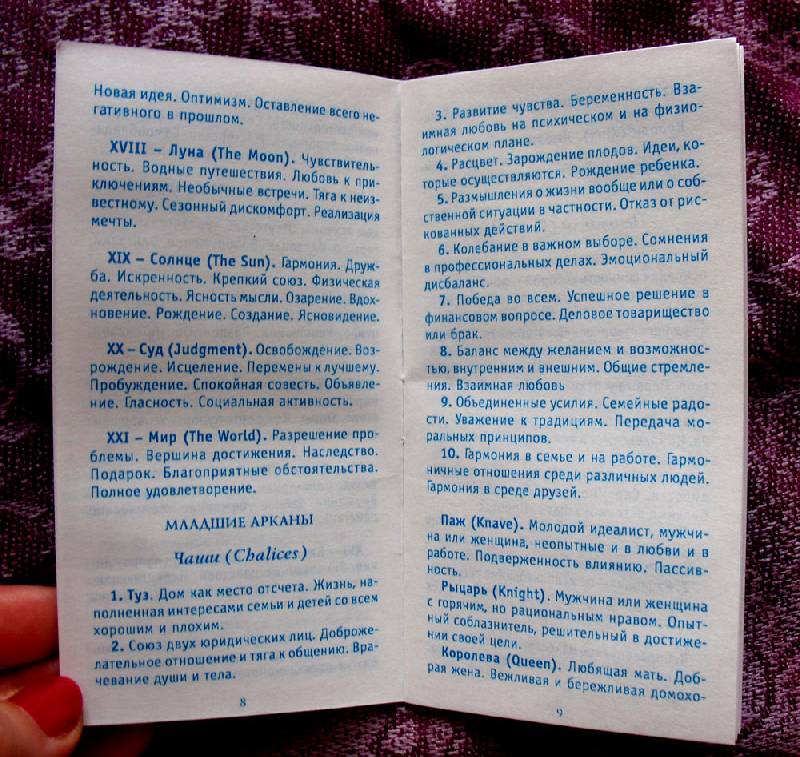 Новая идея. Оптимизм. Оставление всего не-
гативного в прошлом.
XVIII – Луна (The Moon). Чувствитель-
ность. Водные путешествия. Любовь к при-
ключениям. Необычные встречи. Тяга к неиз-
вестному. Сезонный дискомфорт. Реализация
мечты.
XIX – Солнце (The Sun). Гармония. Друж-
ба. Искренность. Крепкий союз. Физическая
деятельность. Ясность мысли. Озарение. Вдох-
новение. Рождение. Создание. Ясновидение.
XX – Суд (Judgment). Освобождение. Воз-
рождение. Исцеление. Перемены к лучшему.
Пробуждение. Спокойная совесть. Объявле-
ние. Гласность. Социальная активность.
XXI – Мир (The World). Разрешение про-
блемы. Вершина достижения. Наследство.
Подарок. Благоприятные обстоятельства.
Полное удовлетворение.
МЛАДШИЕ АРКАНЫ
Чаши (Chalices)
1. Туз. Дом как место отсчета. Жизнь, на-
полненная интересами семьи и детей со всем
хорошим и плохим.
2. Союз двух юридических лиц. Доброже-
лательное отношение и тяга к общению. Вра-
чевание души и тела.
8
3. Развитие чувства. Беременность. Вза-
имная любовь на психическом и на физио-
логическом плане.
4. Расцвет. Зарождение плодов. Идеи, ко-
торые осуществляются. Рождение ребенка.
5. Размышления о жизни вообще или о соб-
ственной ситуации в частности. Отказ от рис-
кованных действий.
6. Колебание в важном выборе. Сомнения
в профессиональных делах. Эмоциональный
дисбаланс.
7. Победа во всем. Успешное решение в
финансовом вопросе. Деловое товарищество
или брак.
8. Баланс между желанием и возможнос-
тью, внутренним и внешним. Общие стремле-
ния. Взаимная любовь
9. Объединенные усилия. Семейные радо-
сти. Уважение к традициям. Передача мо-
ральных принципов.
10. Гармония в семье и на работе. Гармо-
ничные отношения среди различных людей.
Гармония в среде друзей.
Паж (Knave). Молодой идеалист, мужчи-
на или женщина, неопытные и в любви и в
работе. Подверженность влиянию. Пассив-
ность.
Рыцарь (Knight). Мужчина или женщина
с горячим, но рациональным нравом. Опыт-
ный соблазнитель, решительный в достиже-
нии своей цели.
Королева (Queen). Любящая мать. Доб-
рая жена. Вежливая и бережливая домохо-
9